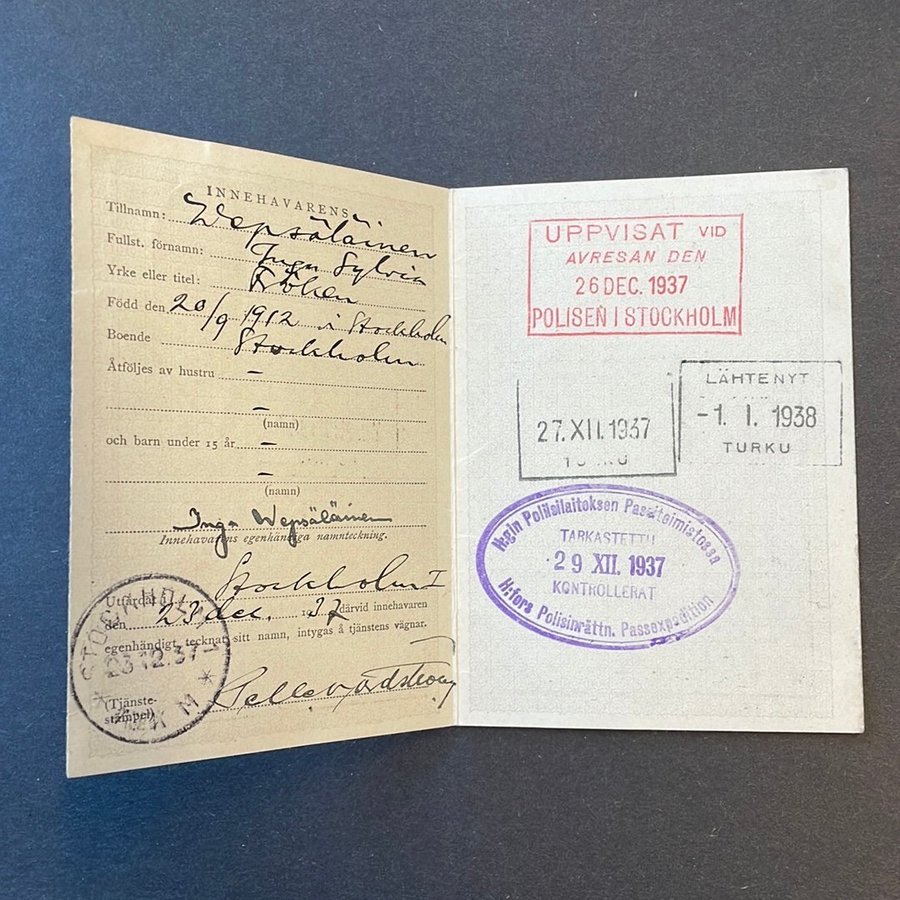 INNEHAVARENS
Tillnamn: Wepsäläinen
Fullst. förnamn: Inga Sylvia
Yrke eller titel: Fröken
Född den 20/9 1912 i Stockholm
Boende Stockholm
Åtföljes av hustru —
—
(namn)
och barn under 15 år —
—
(namn)
Inga Wepsäläinen
Innehavarens egenhändiga namnteckning.
Utfärdat i Stockholm I
den 23 dec. 1937 därvid innehavaren
egenhändigt tecknat sitt namn, intygas å tjänstens vägnar.
(Tjänste-
stämpel)
STOCKHOLM
23.12.37
UPPVISAT VID
AVRESAN DEN
26 DEC. 1937
POLISEN I STOCKHOLM
27. XII. 1937
TURKU
LÄHTENYT
-1. I. 1938
TURKU
H:gin Poliisilaitoksen Passitoimistossa
TARKASTETTU
29 XII. 1937
KONTROLLERAT
H:fors Polisinrättn. Passexpedition